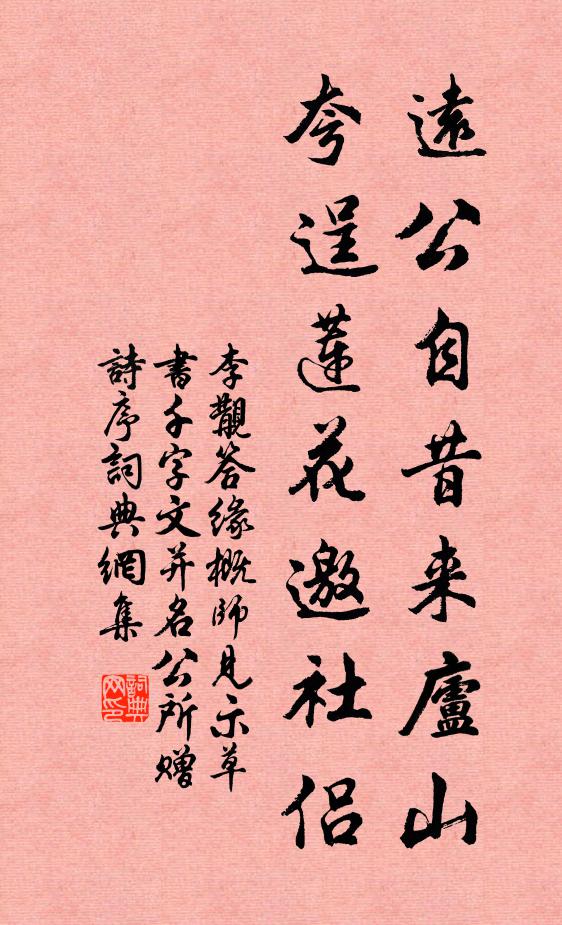 遠公自昔来廬山
夸逞蓮花邀社侶
李觀答緣概師見示草
書千字文并名公所贈
詩序詞典網集
詞典網印